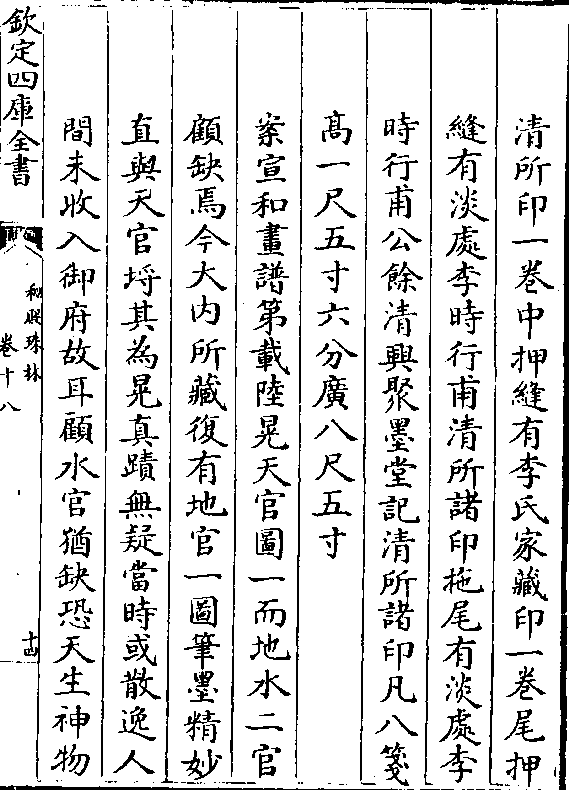 清所印一卷中押縫有李氏家藏印一卷尾押
縫有淡處李時行甫清所諸印拖尾有淡處李
時行甫公餘清興聚墨堂記清所諸印凡八箋
髙一尺五寸六分廣八尺五寸
案宣和畫譜第載陸晃天官圖一而地水二官
顧缺焉今大内所藏復有地官一圖筆墨精妙
直與天官埒其為晃真蹟無疑當時或散逸人
間未收入御府故耳顧水官猶缺恐天生神物
欽定四庫全書
秘殿珠林
卷十八
十四